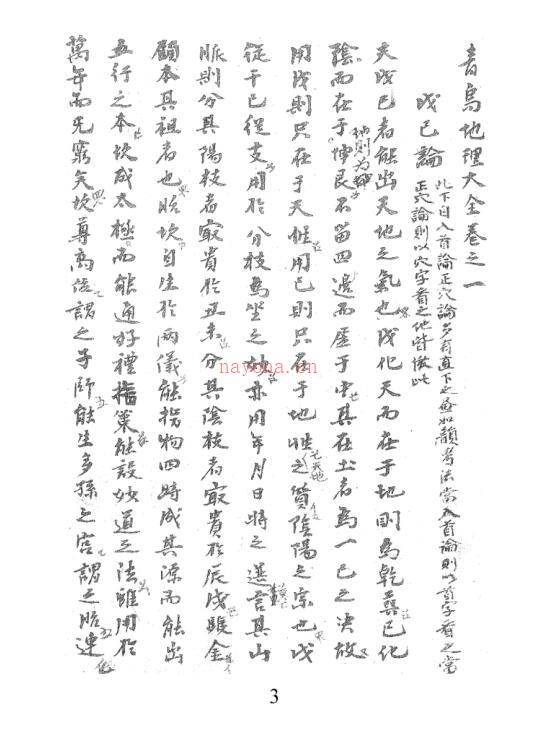 青烏地理大全卷之一
戊己論
此下自入首論正穴論多有直下之如韻考法當入首論則以首字看之當
正穴論則以穴字看之他皆倣此
夫戊己者能出天地之氣也戊化天而在于地則爲乾巽己化
陰而在于坤艮不留四邊而居于中其在土者爲一己之決故
用戊則只在于天性用己則只在于地性之質陰陽之宗也戊
從干己從支用於分枝爲坐之妙亦用年月日時之選言其山
脈則分其陽枝者最貴於丑未分其陰枝者最貴於辰戌雖金
顧本其祖者也胎坎自生於兩儀能揚物四時成其源而能出
五行之本坎成太極而能通好禮指策能設妙道之法雖用於
萬年而无窮矣坎尊高位謂之子師能生多孫之宮謂之胎連
nayona.cn
3